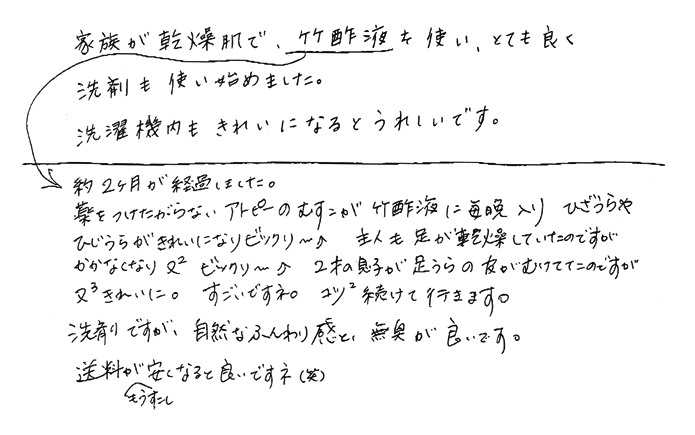 家族が乾燥肌で、竹酢液を使い、とても良く
洗剤も使い始めました。
洗濯機内もきれいになるとうれしいです。
約2ヶ月が経過しました。
薬をつけたがらないアトピーのむすこが竹酢液に毎晩入り ひざうらや
ひじうらがきれいになりビックリ〜♪ 主人も足が乾燥していたのですが
かかなくなり又²ビックリ〜♪ 2才の息子が足うらの皮がむけててこのですが
又³きれいに。 すごいですネ。 コツ²続けて行きます。
洗剤ですが、自然なふんわり感と、無臭が良いです。
送料が安くなると良いですネ(笑)
もうすこし